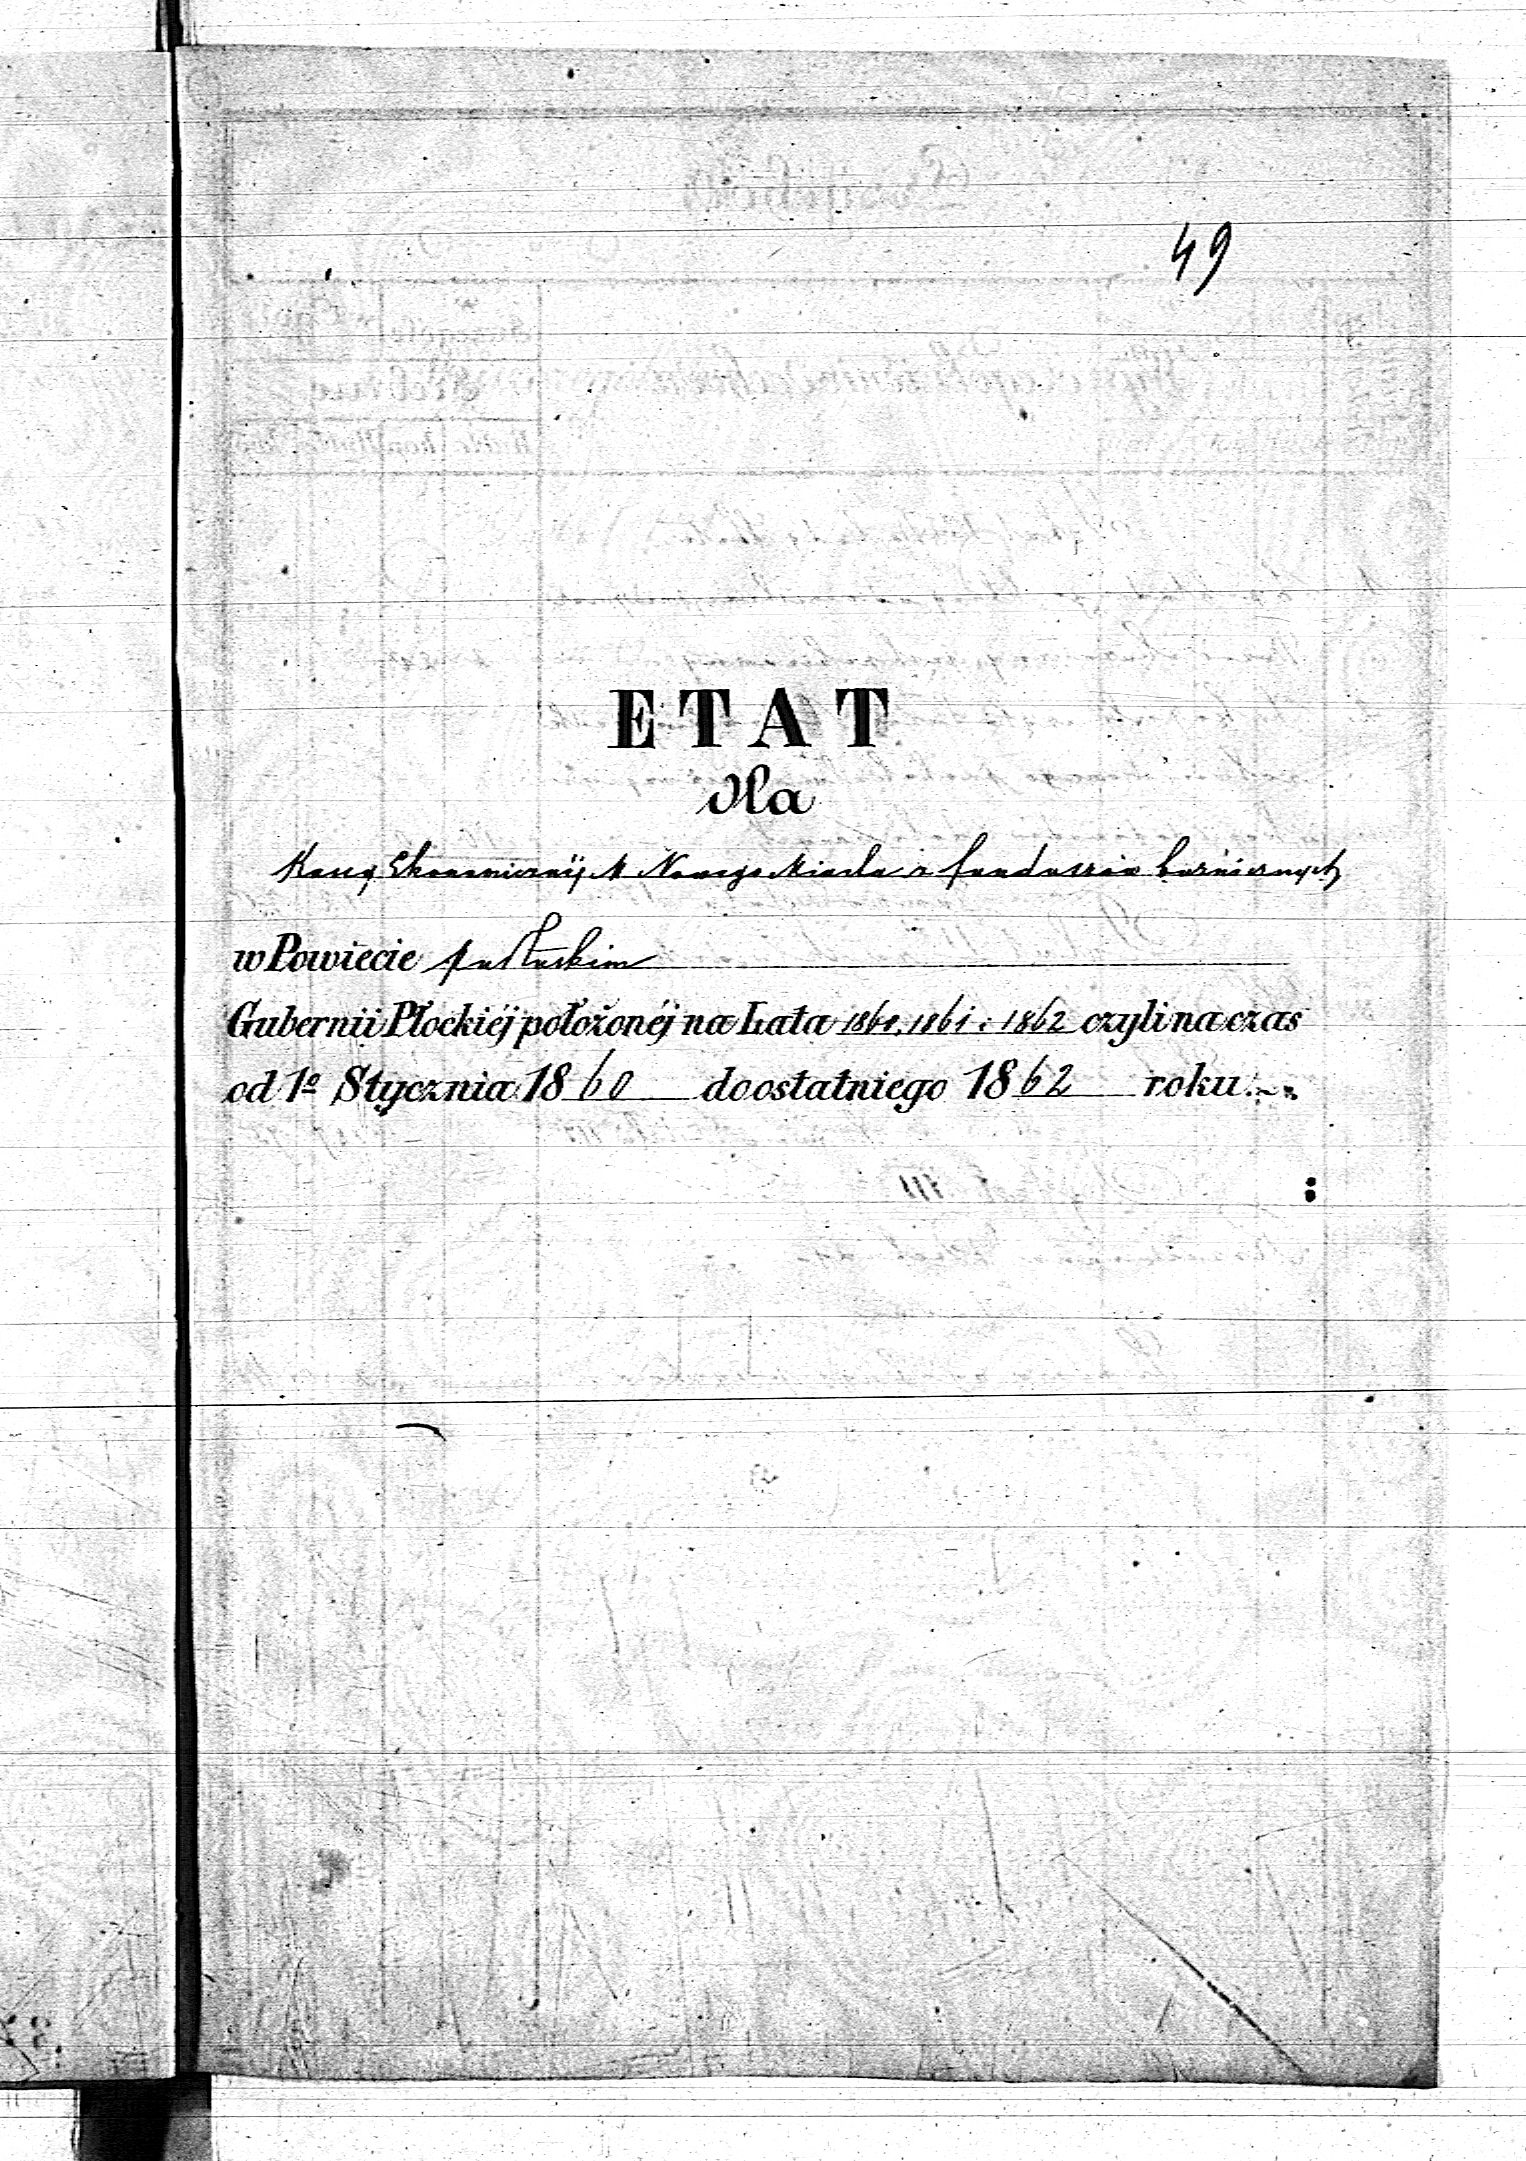 49
ETAT
dla
Kassy Ekonomicznéj M. Nowego Miasta z funduszów bożniczych
w Powiecie pułtuskim
Gubernii Płockiéj położonéj na Lata 1860, 1861 i 1862 czyli na czas
od 1º Stycznia 1860 do ostatniego 1862 roku